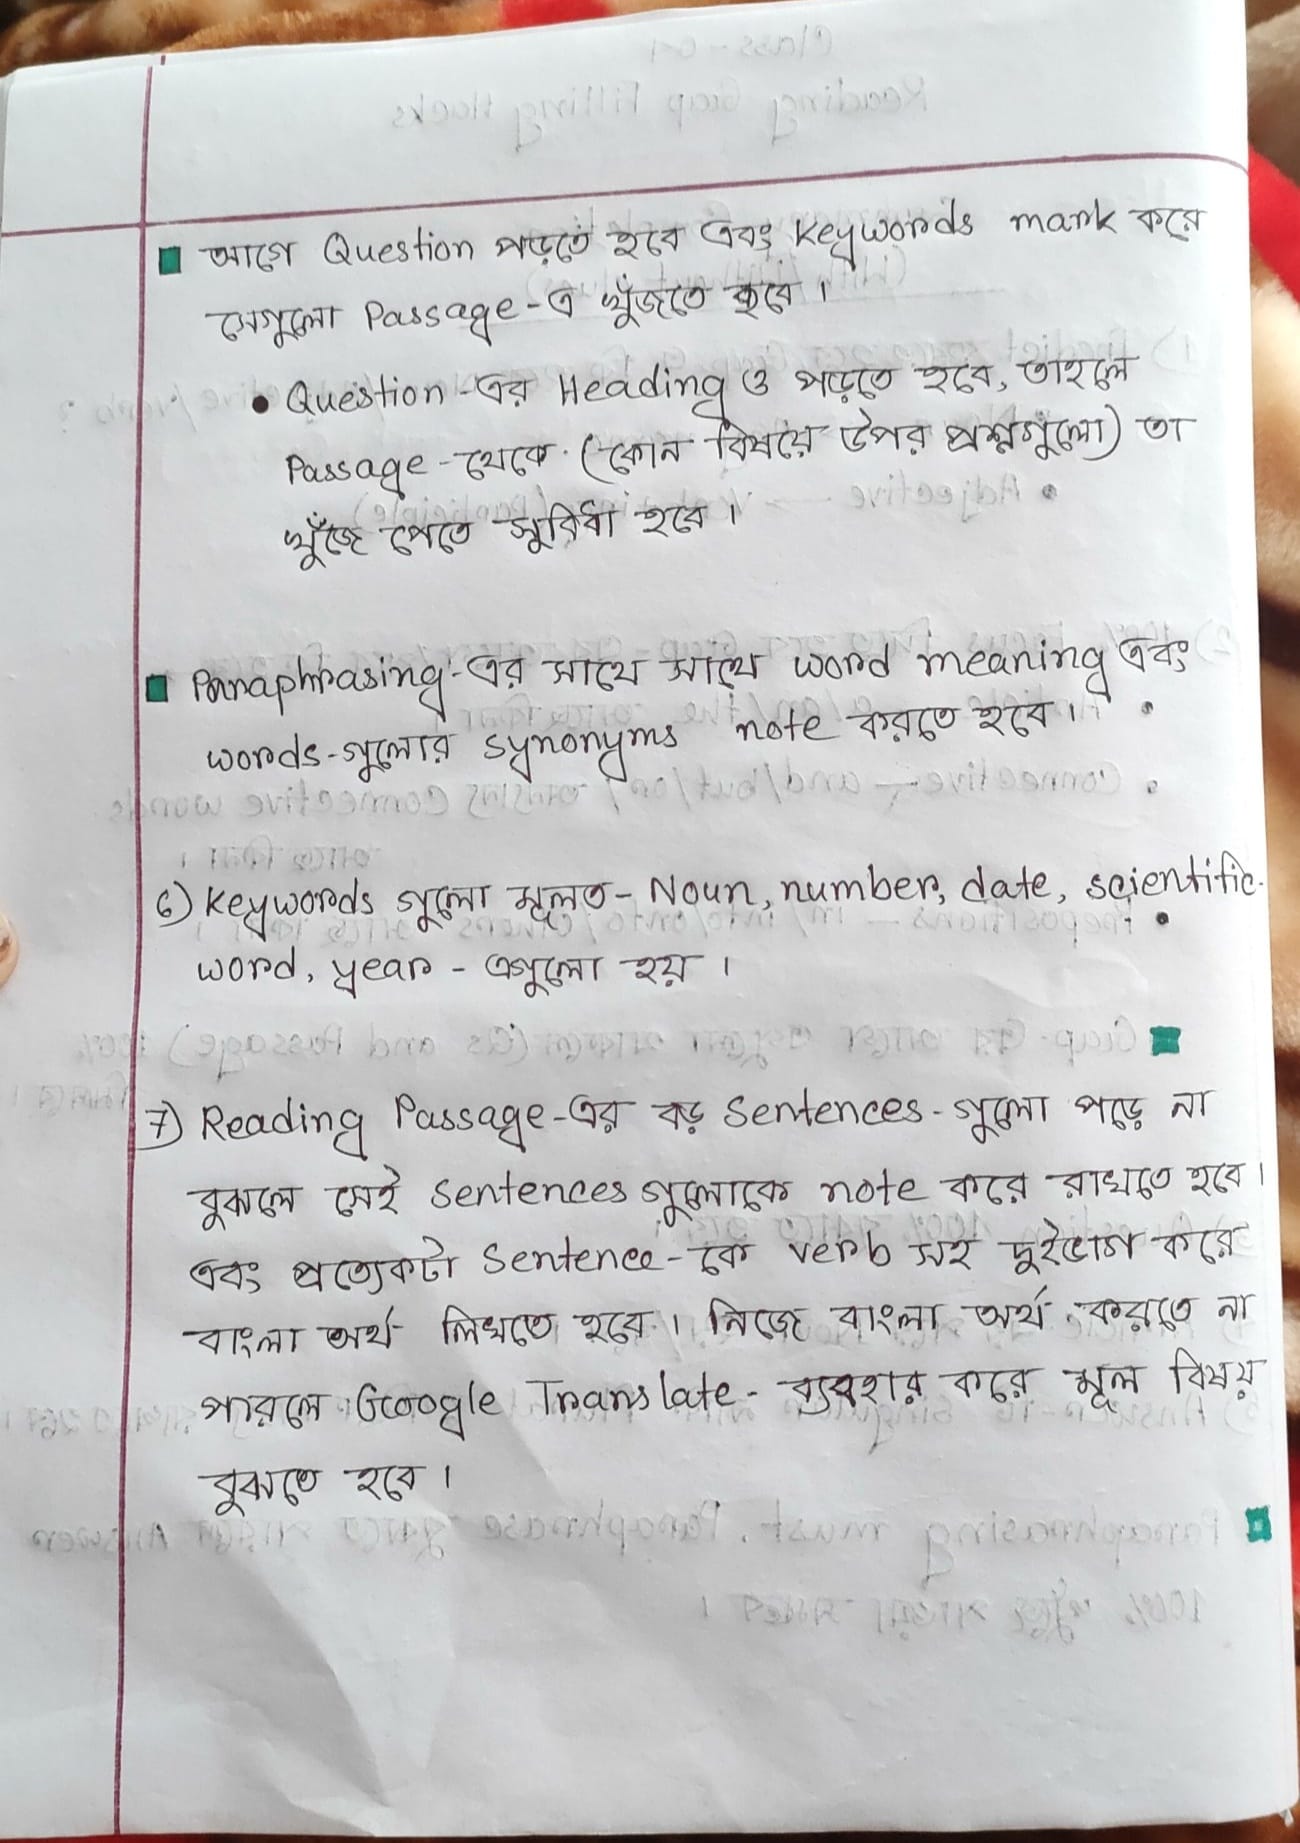 আগে Question পড়তে হবে এবং Keywords mark করে
সেগুলো Passage-এ খুঁজতে হবে।
• Question-এর Heading ও পড়তে হবে, তাহলে
Passage-থেকে (কোন বিষয়ে উপর প্রশ্নগুলো) তা
খুঁজে পেতে সুবিধা হবে।
Paraphrasing-এর সাথে সাথে word meaning এবং
words-গুলোর synonyms note করতে হবে।
6) Keywords গুলো মূলত- Noun, number, date, scientific
word, year - এগুলো হয়।
7) Reading Passage-এর বড় Sentences-গুলো পড়ে না
বুঝলে সেই sentences গুলোকে note করে রাখতে হবে।
এবং প্রত্যেকটা Sentence-কে verb সহ দুইভাগ করে
বাংলা অর্থ লিখতে হবে। নিজে বাংলা অর্থ করতে না
পারলে Google Translate- ব্যবহার করে মূল বিষয়
বুঝতে হবে।